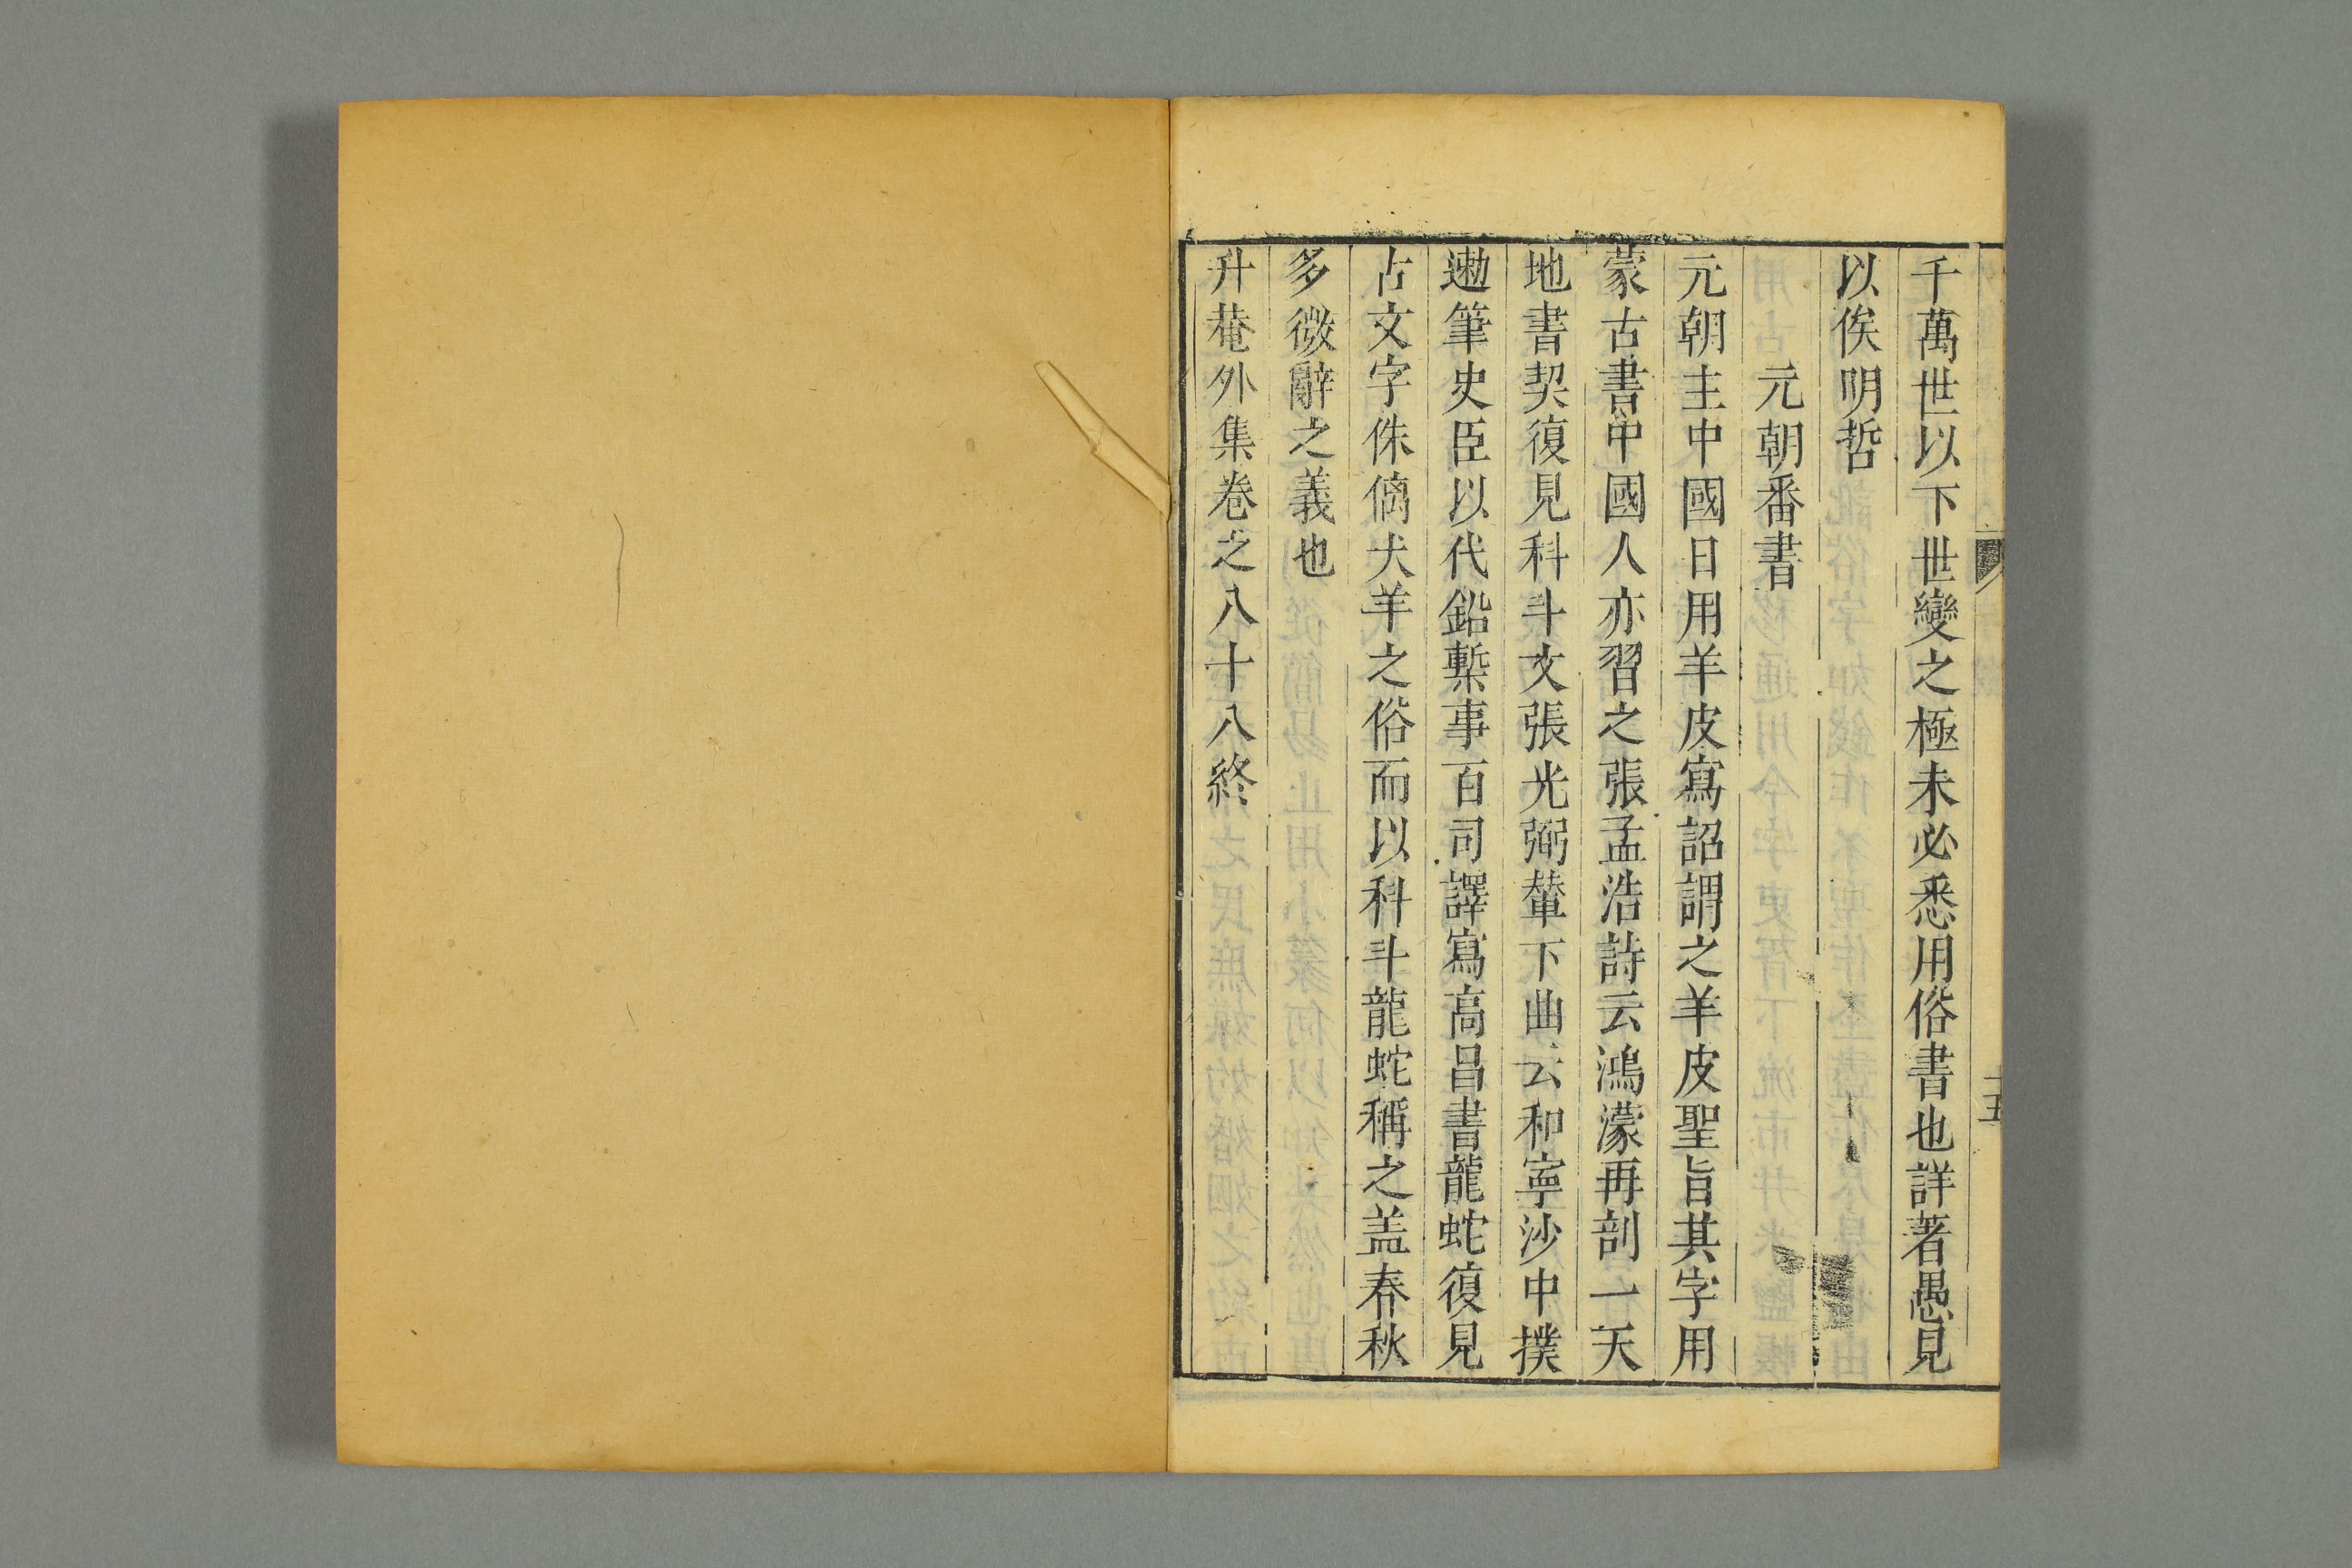 千萬世以下世變之極未必悉用俗書也詳著愚見
以俟明哲
元朝番書
元朝主中國日用羊皮寫詔謂之羊皮聖旨其字用
蒙古書中國人亦習之張孟浩詩云鴻濛再剖一天
地書契復見科斗文張光弼輦下曲云和寧沙中撲
遬筆史臣以代鉛槧事百司譯寫高昌書龍蛇復見
古文字侏偊犬羊之俗而以科斗龍蛇稱之盖春秋
多微辭之義也
升菴外集卷之八十八終